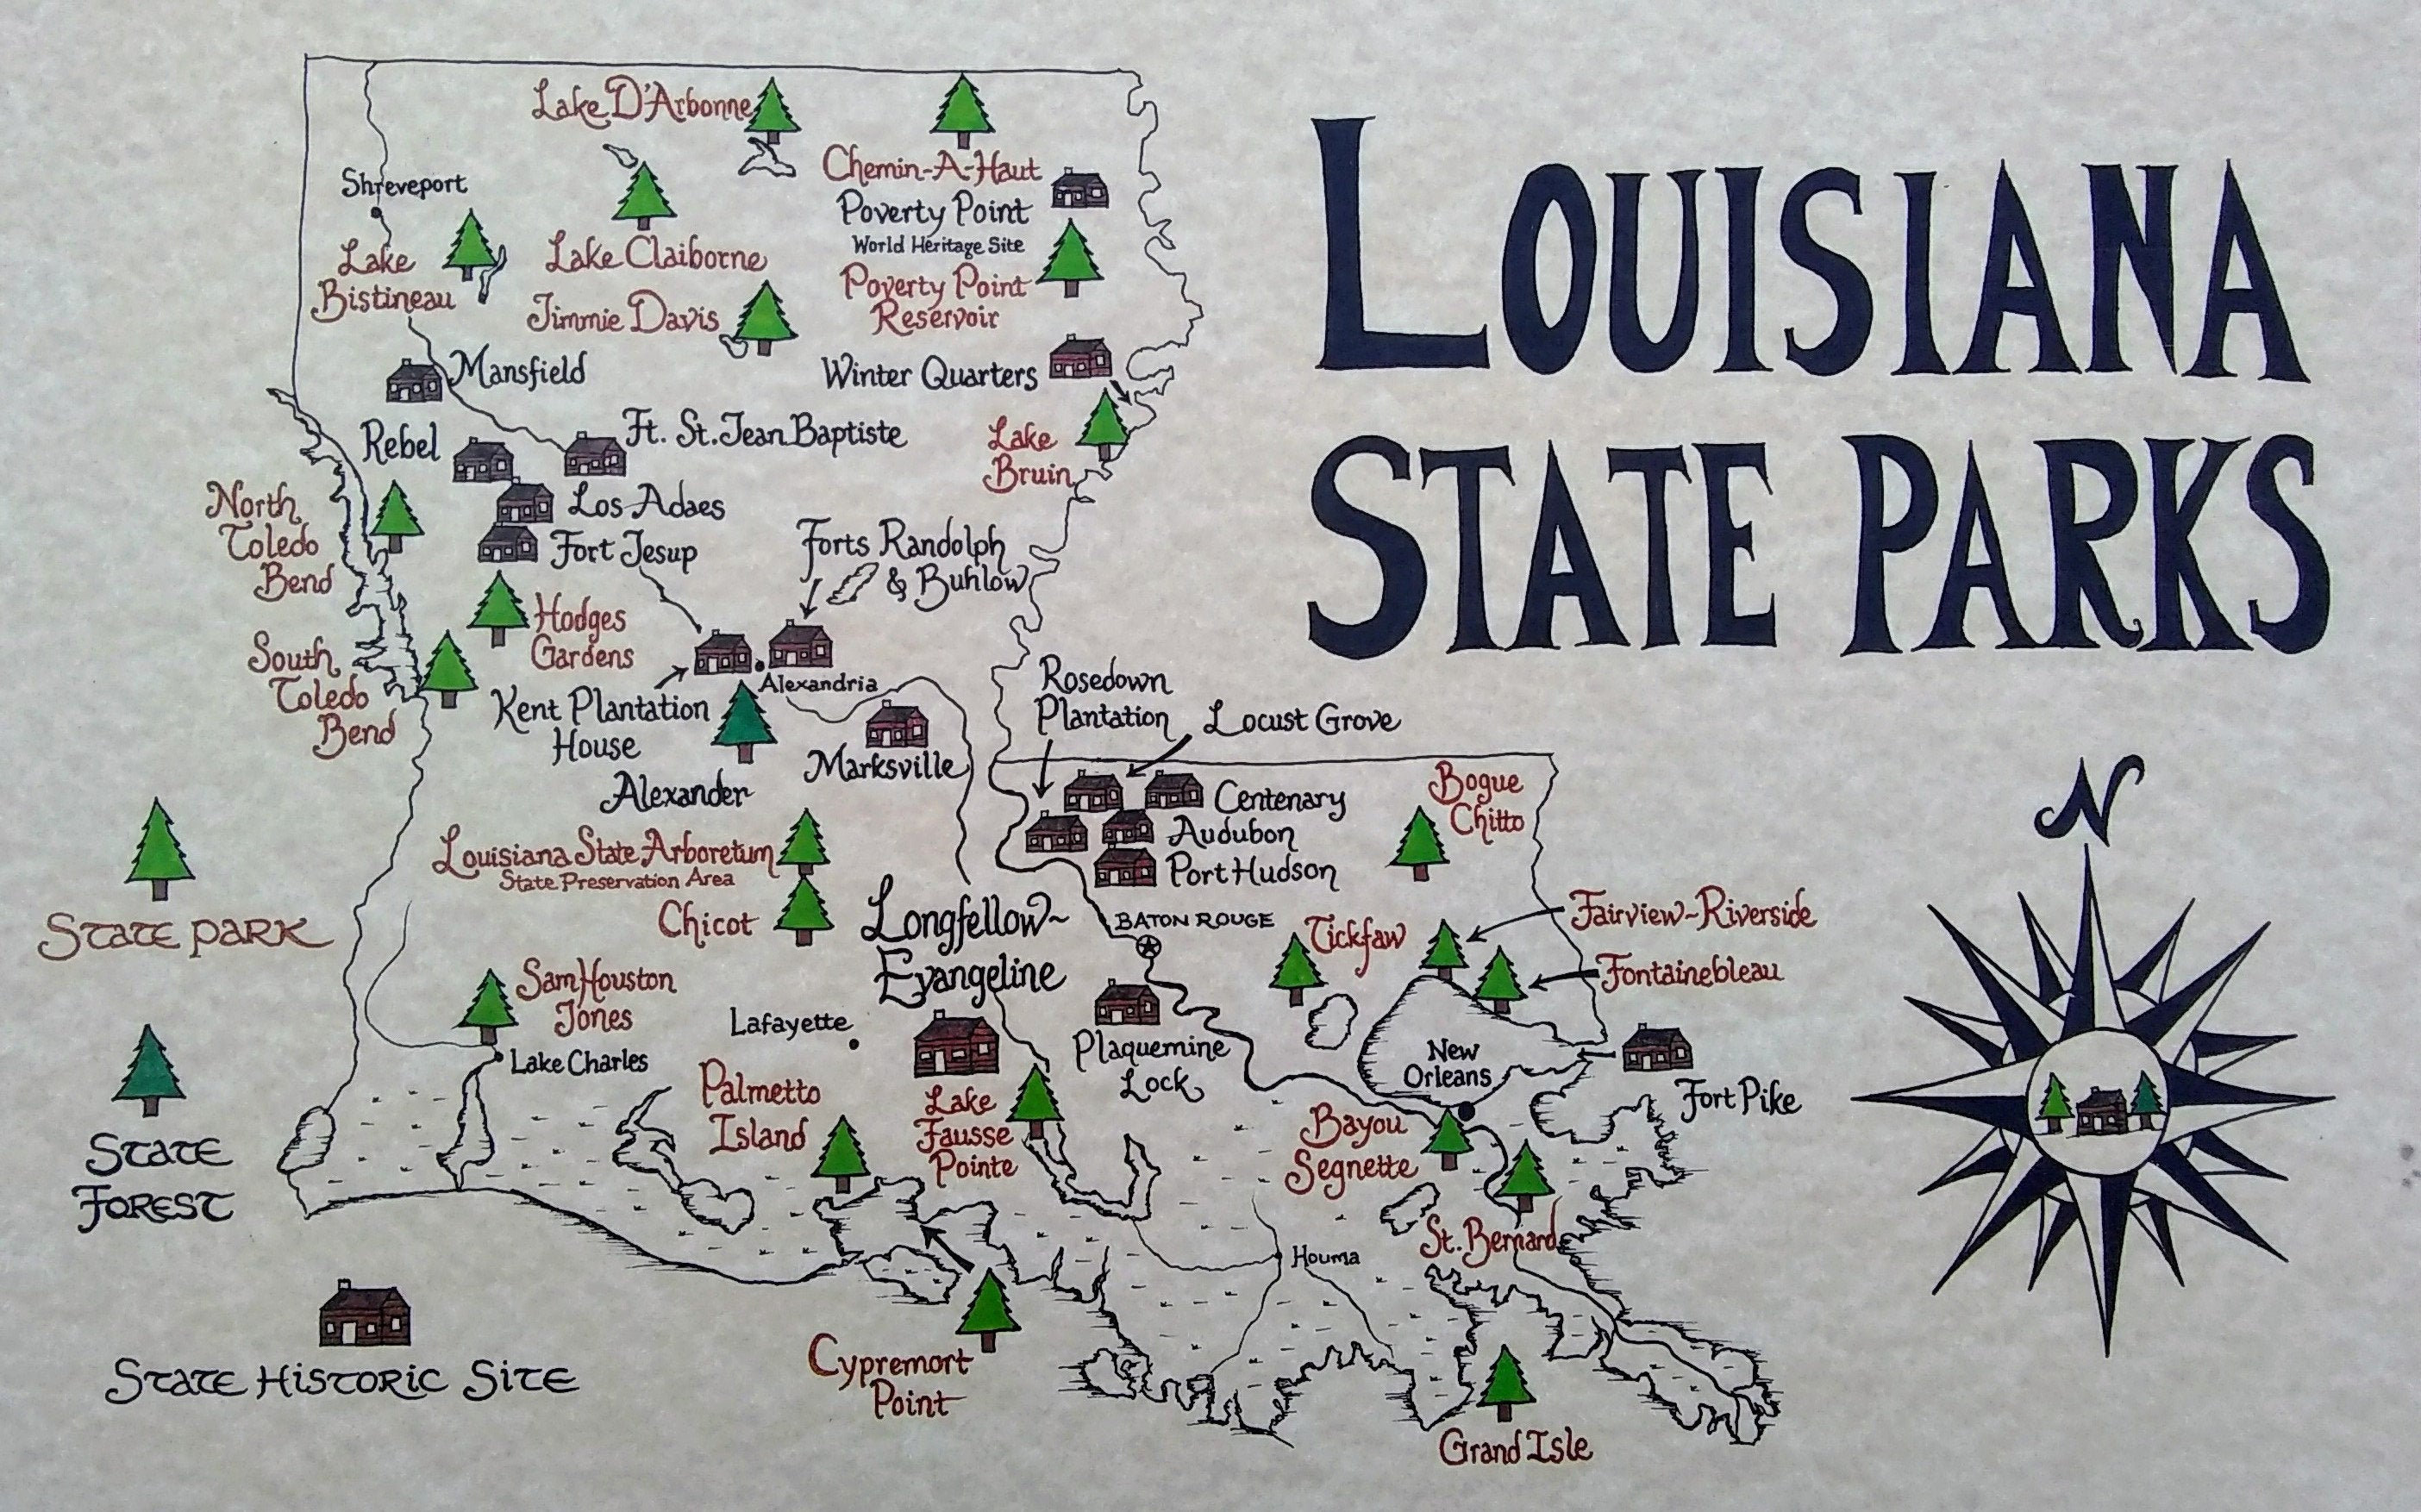 LOUISIANA
STATE PARKS
Lake D'Arbonne
Chemin-A-Haut
Shreveport
Poverty Point
World Heritage Site
Lake
Bistineau
Lake Claiborne
Jimmie Davis
Poverty Point
Reservoir
Mansfield
Winter Quarters
Rebel
Ft. St. Jean Baptiste
Lake
Bruin
North
Toledo
Bend
Los Adaes
Fort Jesup
Forts Randolph
& Buhlow
Hodges
Gardens
South
Toledo
Bend
Kent Plantation
House
Alexandria
Alexander
Marksville
Rosedown
Plantation
Locust Grove
Centenary
Audubon
Port Hudson
Bogue
Chitto
Louisiana State Arboretum
State Preservation Area
Chicot
Longfellow~
Evangeline
BATON ROUGE
Tickfaw
Fairview~Riverside
Fontainebleau
Sam Houston
Jones
Lake Charles
Lafayette
Plaquemine
Lock
New
Orleans
Fort Pike
Palmetto
Island
Lake
Fausse
Pointe
Bayou
Segnette
St. Bernard
Houma
Cypremort
Point
Grand Isle
STATE PARK
STATE
FOREST
STATE HISTORIC SITE
N